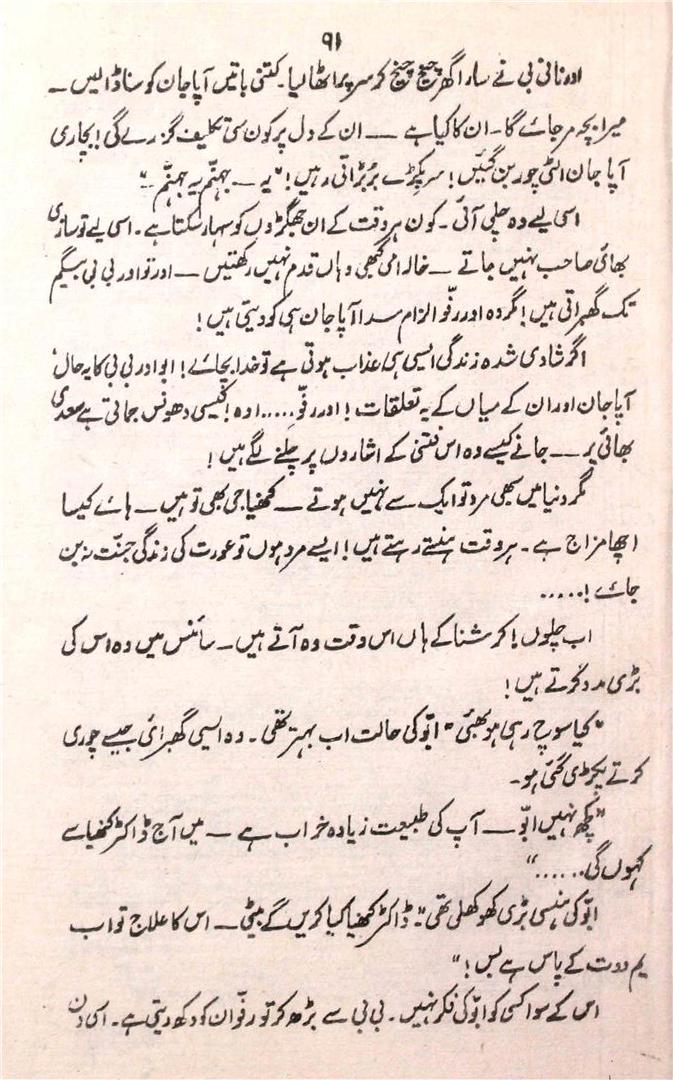 ۹۱
اور نانی بی نے سارا گھر چیخ چیخ کر سر پر اٹھا لیا۔ کتنی باتیں آپا جان کو سنا ڈالیں ۔
میرا بچہ مر جائے گا۔ ان کا کیا ہے ـــ ان کے دل پر کون سی تکلیف گزرے گی! بچاری
آپا جان الٹی چور بن گئیں! سر پکڑے بڑبڑاتی رہیں! "یہ ـــ جہنّم یہ جہنّم ۔"
اسی لیے وہ چلی آئی۔ کون ہر وقت کے ان جھگڑوں کو سہار سکتا ہے۔ اسی لیے تو ساڑی
بھائی صاحب نہیں جاتے ـــ خالہ امی کبھی وہاں قدم نہیں رکھتیں ـــ اور تو اور بی بی بیگم
تک گھبراتی ہیں! مگر وہ اور رفّو الزام سدا آپا جان ہی کو دیتی ہیں!
اگر شادی شدہ زندگی ایسی ہی عذاب ہوتی ہے تو خدا بچائے! ابو اور بی بی کا یہ حال،
آپا جان اور ان کے میاں کے یہ تعلقات! اور رفّو ..... اوہ! کیسی دھونس جماتی ہے سعدی
بھائی پر ـــ جانے کیسے وہ اس فتنی کے اشاروں پر چلنے لگے ہیں!
مگر دنیا میں سبھی مرد تو ایک سے نہیں ہوتے ـــ کنھیا جی بھی تو ہیں ـــ ہائے کیسا
اچھا مزاج ہے۔ ہر وقت ہنستے رہتے ہیں! ایسے مرد ہوں تو عورت کی زندگی جنّت نہ بن
جائے!.....
اب چلوں! کرشنا کے ہاں اس وقت وہ آتے ہیں۔ سائنس میں وہ اس کی
بڑی مدد کرتے ہیں!
"کیا سوچ رہی ہو بھئی" ابّو کی حالت اب بہتر تھی۔ وہ ایسی گھبرائی جیسے چوری
کرتے پکڑی گئی ہو۔
"کچھ نہیں ابّو ـــ آپ کی طبیعت زیادہ خراب ہے ـــ میں آج ڈاکٹر کنھیا سے
کہوں گی......"
ابّو کی ہنسی بڑی کھوکھلی تھی۔ "ڈاکٹر کنھیا کیا کریں گے بیٹی ـــ اس کا علاج تو اب
یم دوت کے پاس ہے بس!"
اس کے سوا کسی کو ابّو کی فکر نہیں۔ بی بی سے بڑھ کر تو رفّو ان کو دکھ دیتی ہے۔ اسی دن